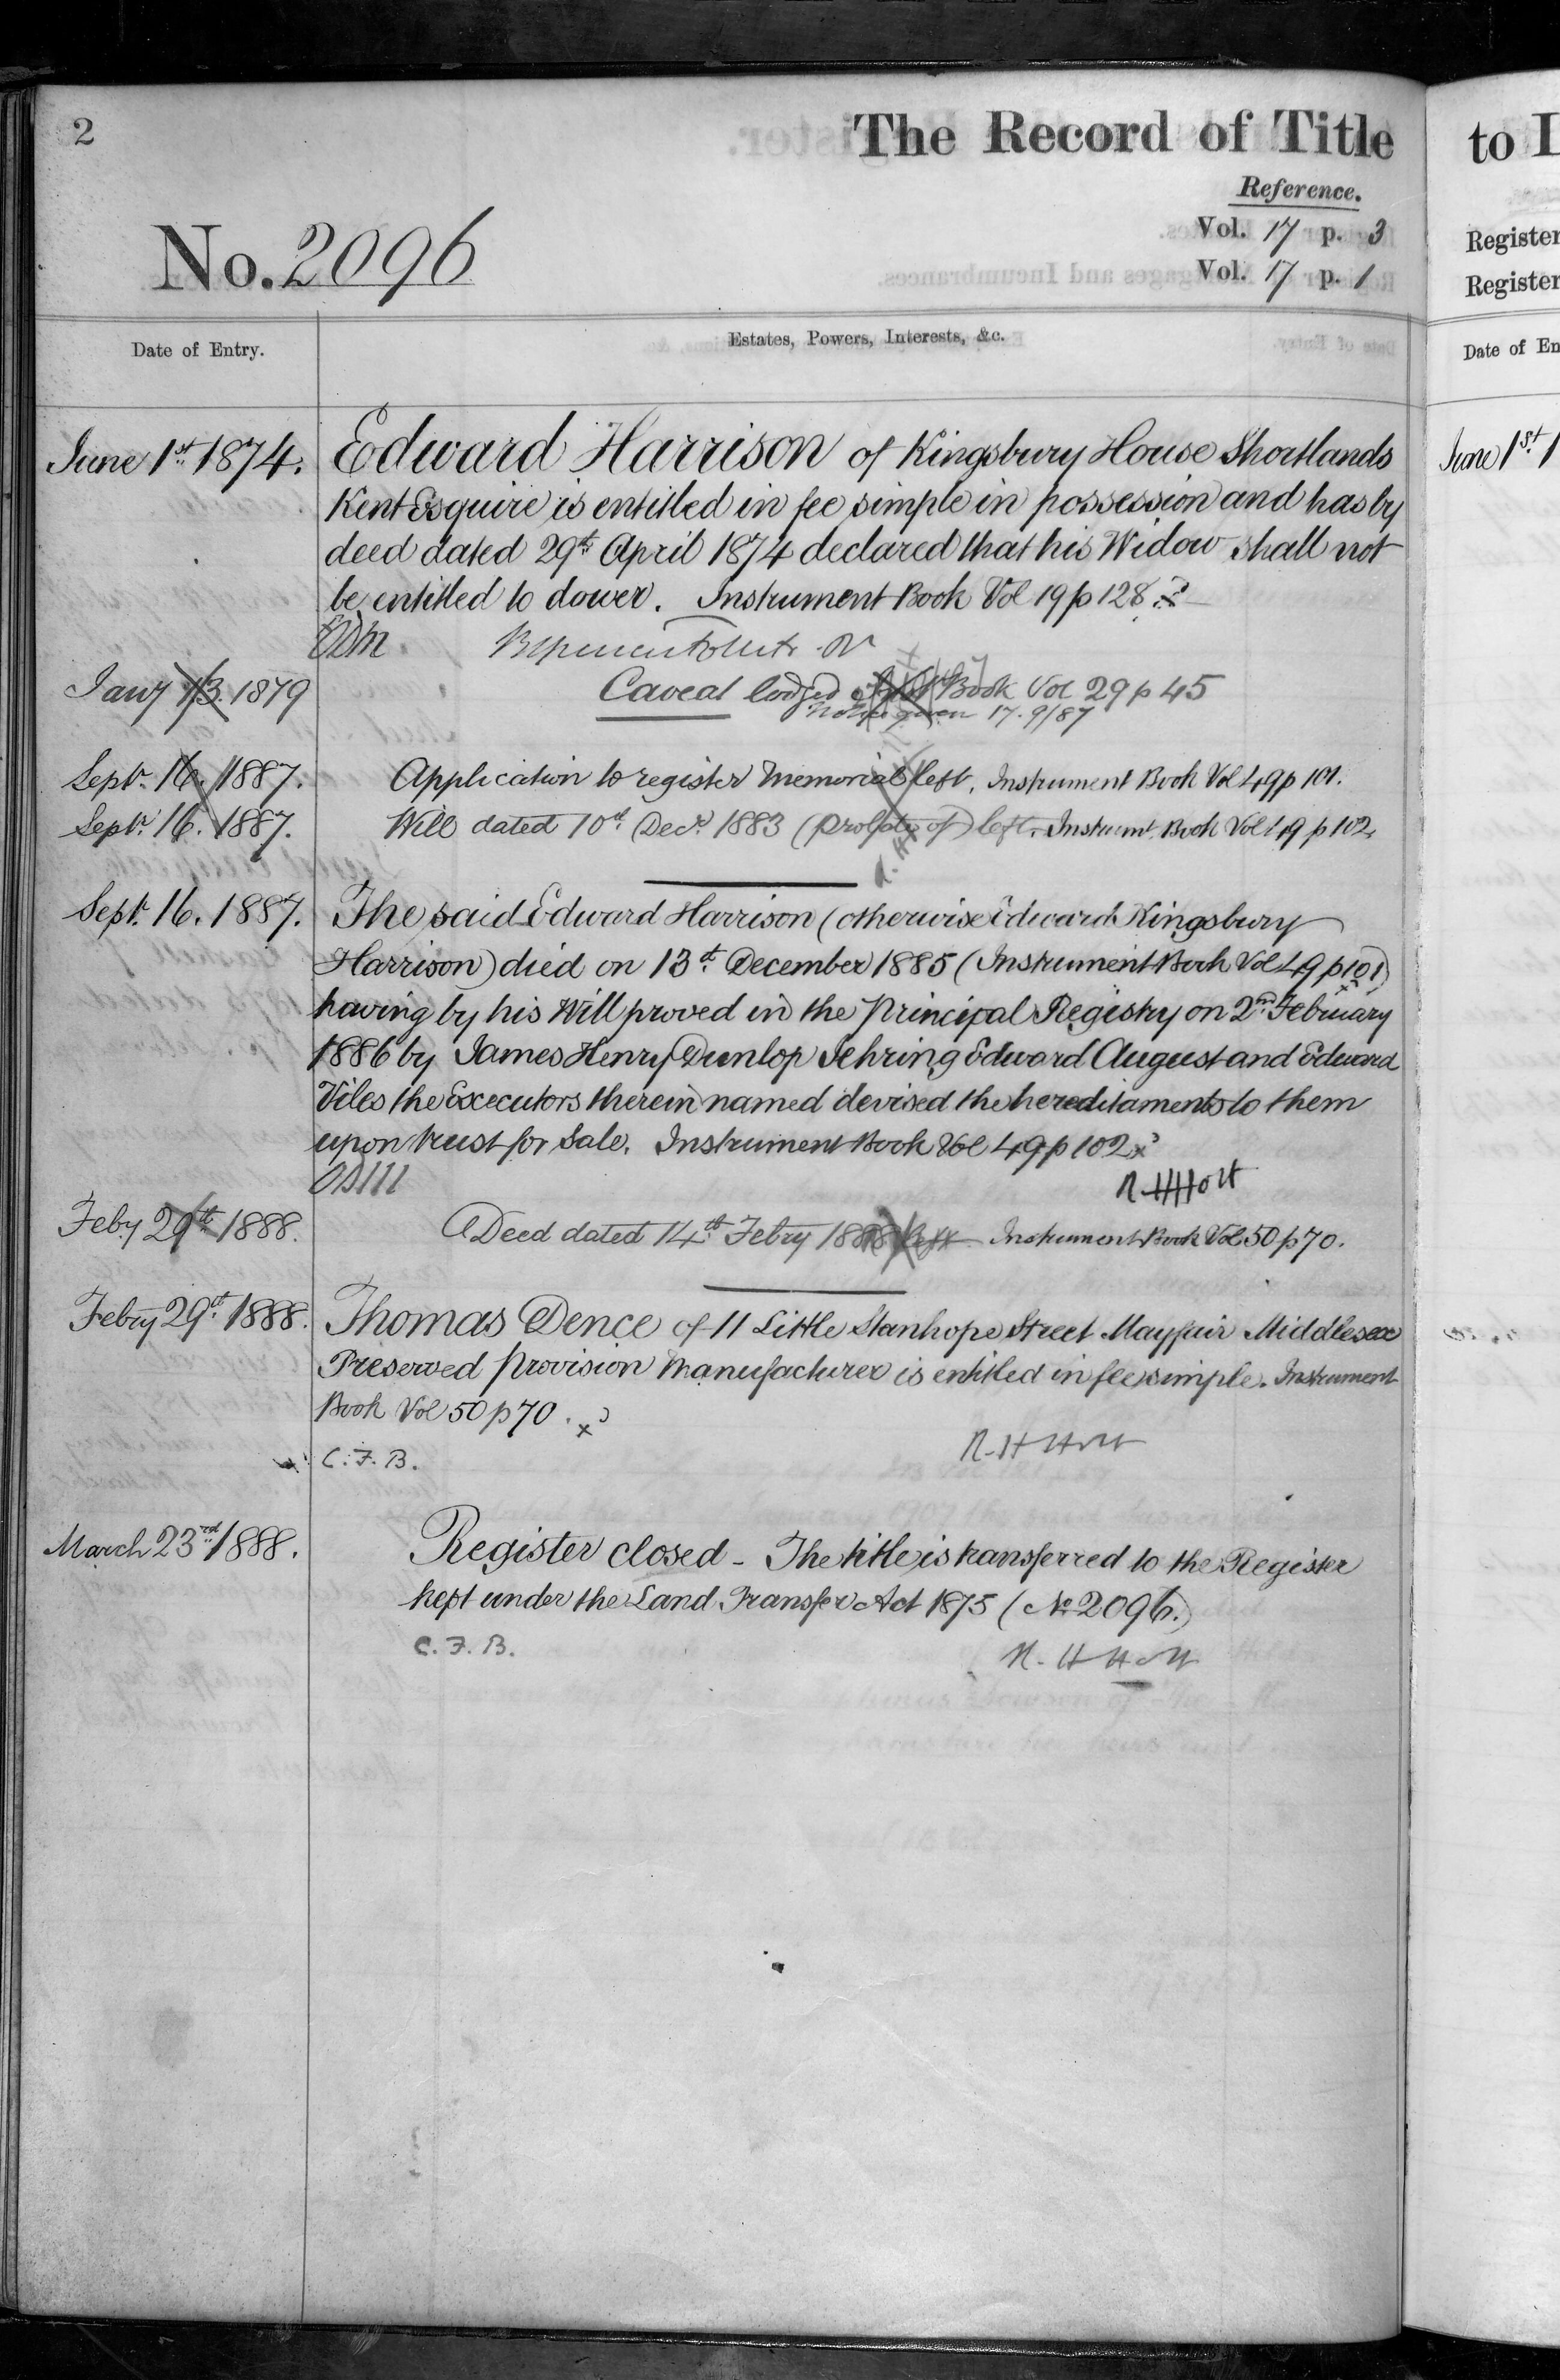 2
The Record of Title
Reference.
Vol. 17 p. 3
Vol. 17 p. 1
No. 2096
Date of Entry.
Estates, Powers, Interests, &c.
June 1st 1874. Edward Harrison of Kingsbury House Shortlands
Kent Esquire is entitled in fee simple in possession and has by
deed dated 29th April 1874 declared that his Widow shall not
be entitled to dower. Instrument Book Vol 19 p 128
Jany 13. 1879 Caveat lodged Book Vol 29 p 45
Notice given 17.9/87
Septr. 16. 1887. Application to register Memorial left. Instrument Book Vol 49 p 101.
Septr. 16. 1887. Will dated 10th Decr. 1883 (probate of) left. Instrumt. Book Vol 49 p 102.
Septr. 16. 1887. The said Edward Harrison (otherwise Edward Kingsbury
Harrison) died on 13th December 1885 (Instrument Book Vol 49 p 101)
having by his Will proved in the Principal Registry on 2nd February
1886 by James Henry Dunlop Jehring Edward August and Edward
Viles the Executors therein named devised the hereditaments to them
upon trust for Sale. Instrument Book Vol 49 p 102
R. H Holt
Feby 29th 1888. Deed dated 14th Febry 1888 left Instrument Book Vol 50 p 70.
Febry 29th 1888. Thomas Dence of 11 Little Stanhope Street Mayfair Middlesex
Preserved Provision Manufacturer is entitled in fee simple. Instrument
Book Vol 50 p 70.
C. F. B. R. H Holt
March 23rd 1888. Register closed - The title is transferred to the Register
kept under the Land Transfer Act 1875 (No 2096.)
C. F. B. R. H Holt
to
Register
Register
Date of En
June 1st 1